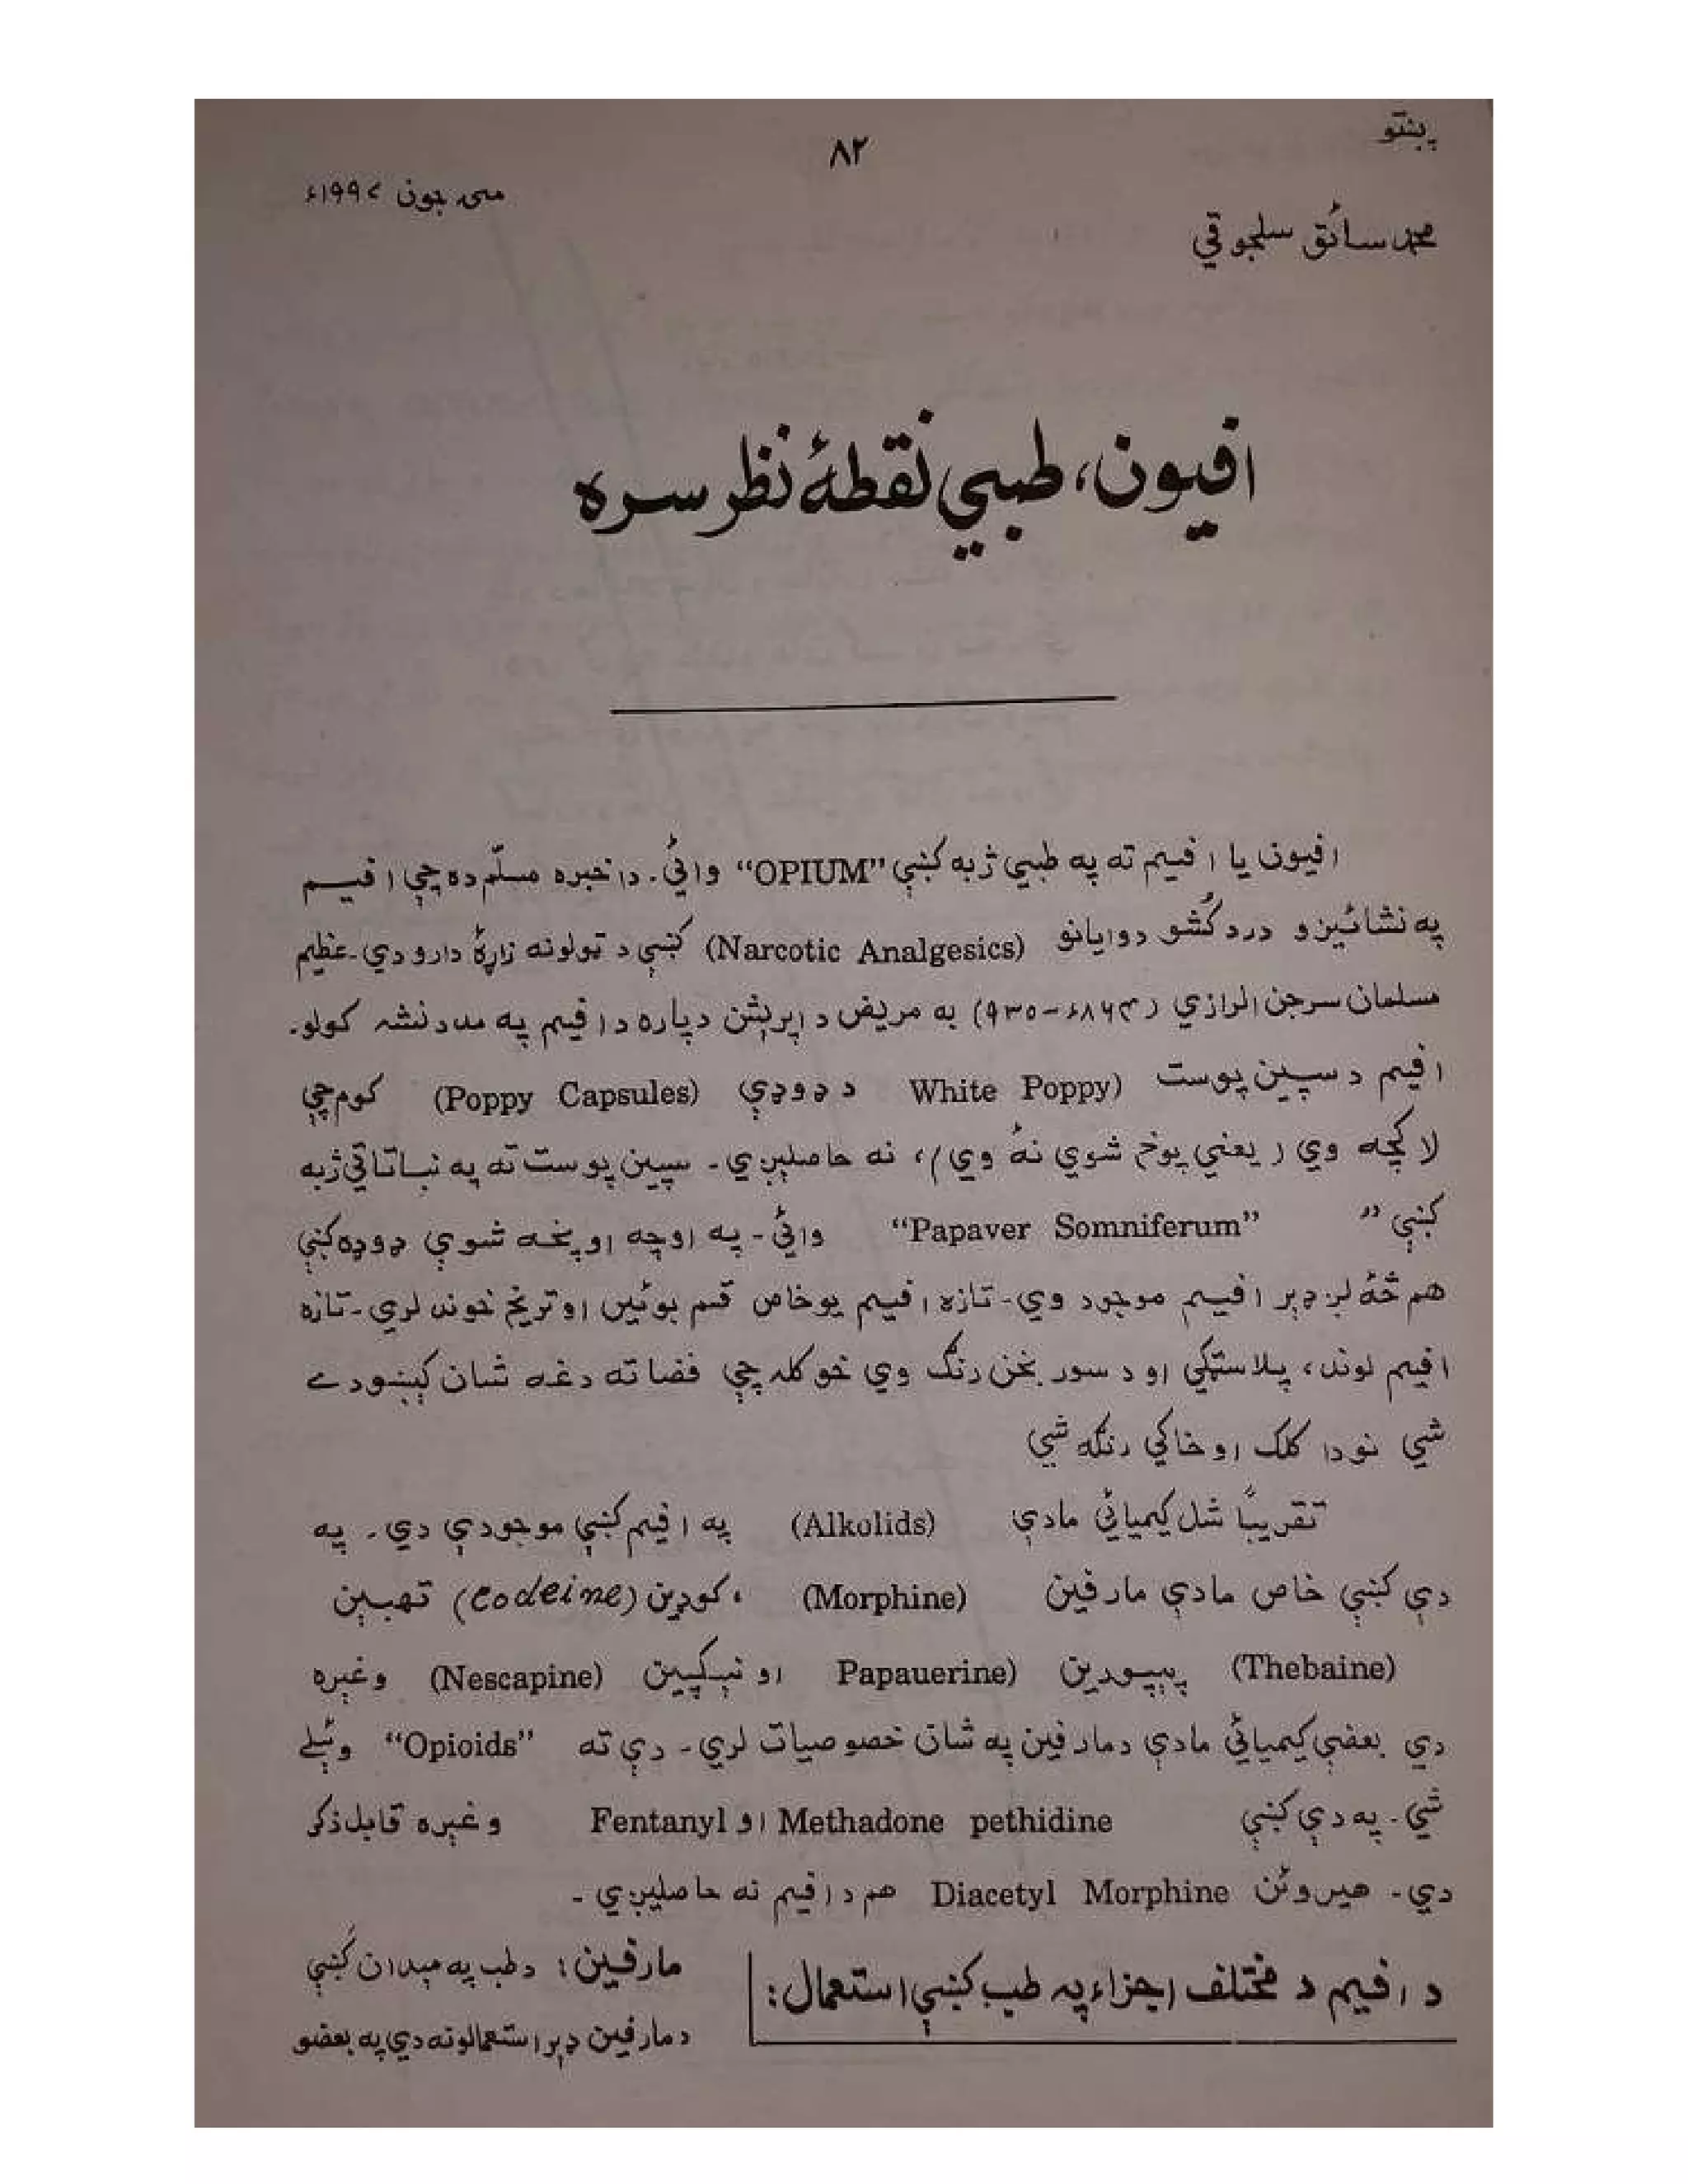 پښتو
۸۲
مئ جون ۱۹۹۷ء
محمد سائق سلجوقي
افيون، طبيي نقطهٔ نظر سره
افيون يا افيم ته په طبيي ژبه کښې “OPIUM” وائي۔ دا خبره مسلّم ده چې افيم
په نشائيزو دردکُشو دوايانو (Narcotic Analgesics) کښې د ټولو نه زاړهٔ دارو دي۔ عظيم
مسلمان سرجن الرازي (۸۶۴ء-۹۳۵) به مريض د اپريشن دپاره د افيم په مدد نشه کولو۔
افيم د سپين پوست White Poppy) د ډوډې (Poppy Capsules) کوم چې
لا کچه وي (يعني پوخ شوي نهٔ وي)، نه حاصليږي۔ سپين پوست ته په نباتاتي ژبه
کښې ” “Papaver Somniferum” وائي۔ په اوچه او پخه شوې ډوډه کښې
هم څهٔ لږ ډېر افيم موجود وي۔ تازه افيم يو خاص قسم بوئين او تريخ خوند لري۔ تازه
افيم لوند، پلاستيکي او د سور بخن رنګ وي خو کله چې فضا ته دغه شان کېښودے
شي نو دا کلک او خاکي رنګه شي
تقريبًا شل کيميائي مادې (Alkolids) په افيم کښې موجودې دي۔ په
دې کښې خاص مادې مارفين (Morphine) ، کوډين (codeine) تهبين
(Thebaine) پيپورين Papauerine) او نېسکپين (Nescapine) وغېره
دي بعضې کيميائي مادې د مارفين په شان خصوصيات لري۔ دې ته “Opioids” وئيلے
شي۔ په دې کښې Methadone pethidine او Fentanyl وغېره قابل ذکر
دي۔ هيروئن Diacetyl Morphine هم د افيم نه حاصليږي۔
د افيم د مختلف اجزاء په طب کښې استعمال:
مارفين: د طب په ميدان کښې
د مارفين ډېر استعمالونه دي په بعضو